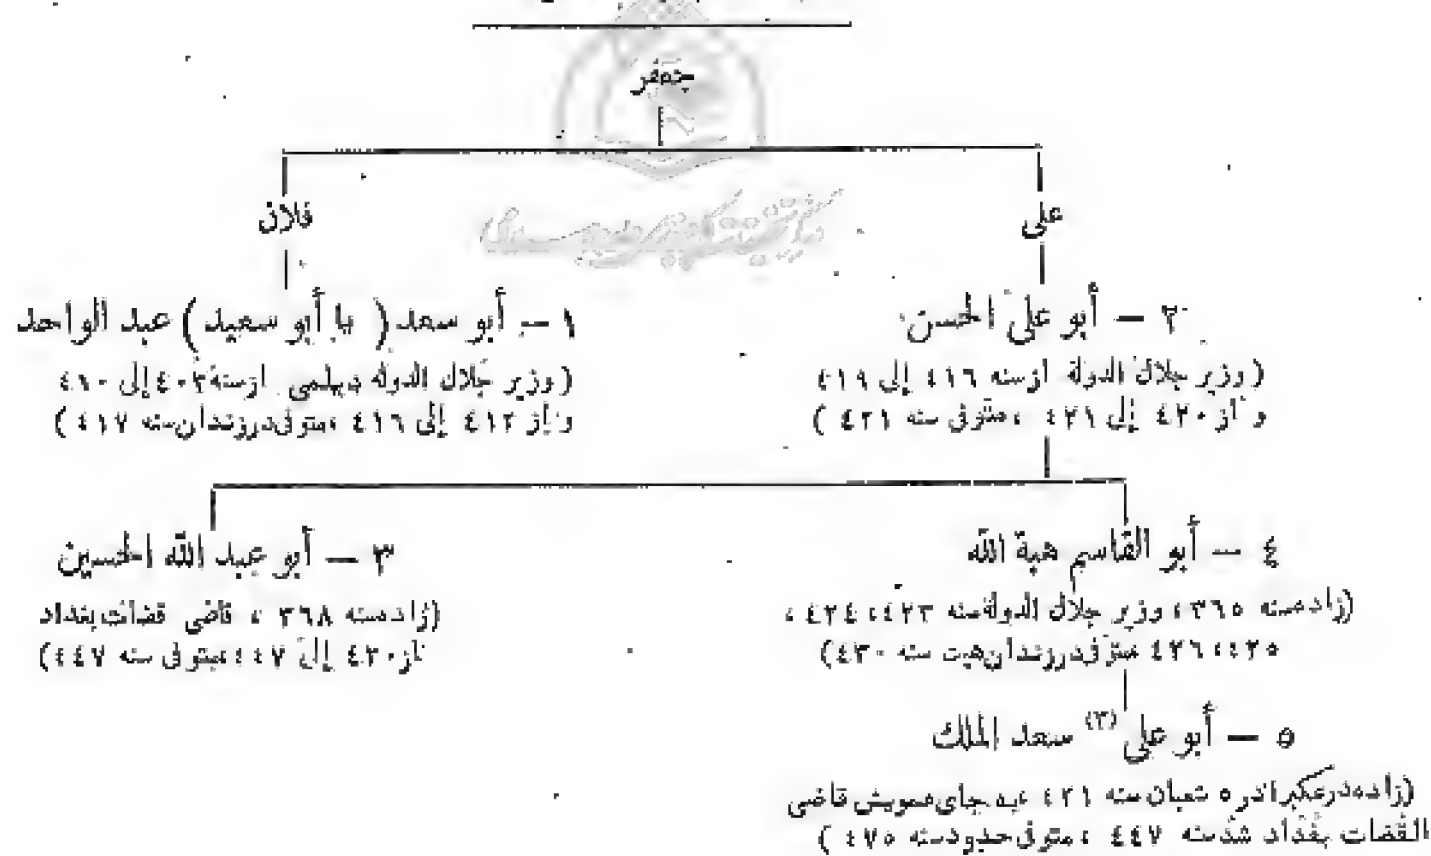 جعفر
على
فلان
٢ — أبو على الحسن
(وزير جلال الدولة ازسنه ٤١٦ إلى ٤١٩
و از ٤٢٠ إلى ٤٢١ ، متوفى سنه ٤٢١ )
١ — أبو سعد ( يا أبو سعيد ) عبد الواحد
( وزير جلال الدوله ديلمى ازسنه ٤٠٣ إلى ٤١٠
و از ٤١٢ إلى ٤١٦ ، متوفى درزندان سنه ٤١٧ )
٤ — أبو القاسم هبة الله
(زاده سنه ٣٦٥ ، وزير جلال الدولة سنه ٤٢٣ ، ٤٢٤ ،
٤٢٥ ، ٤٢٦ متوفى درزندان هيت سنه ٤٣٠)
٣ — أبو عبد الله الحسين
(زاده سنه ٣٦٨ ، قاضى قضات بغداد
از ٤٢٠ إلى ٤٤٧ ، متوفى سنه ٤٤٧)
٥ — أبو على (٣) سعد الملك
(زاده درعكبرا در ٥ شعبان سنه ٤٢١ ، به جاى عمويش قاضى
القضات بغداد شد سنه ٤٤٧ ، متوفى حدود سنه ٤٧٥ )